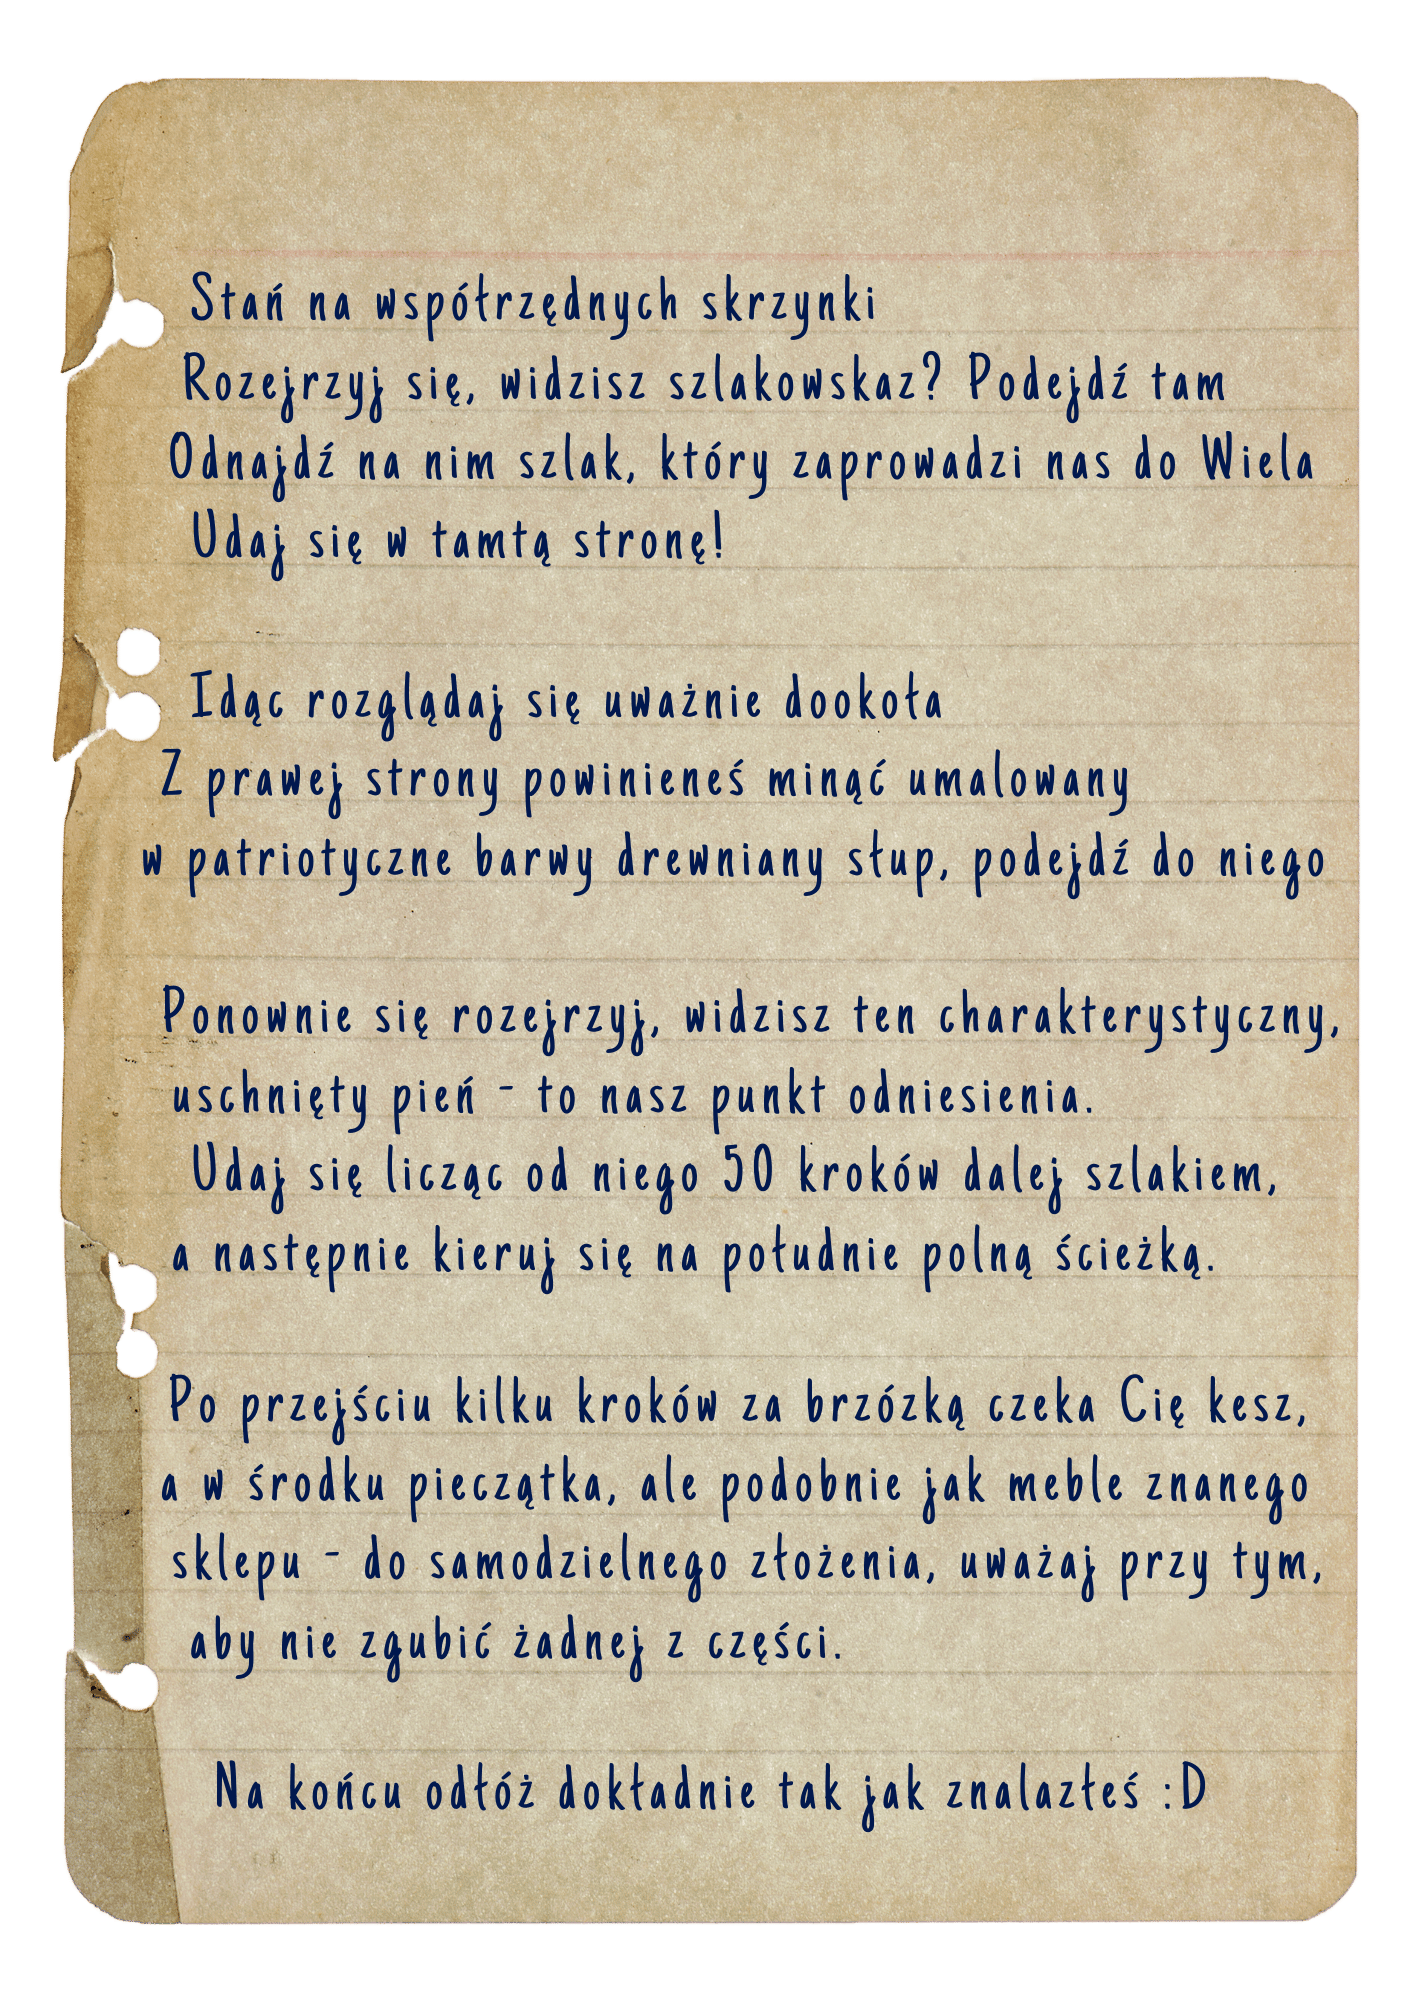 Stań na współrzędnych skrzynki
Rozejrzyj się, widzisz szlakowskaz? Podejdź tam
Odnajdź na nim szlak, który zaprowadzi nas do Wiela
Udaj się w tamtą stronę!
Idąc rozglądaj się uważnie dookoła
Z prawej strony powinieneś minąć umalowany
w patriotyczne barwy drewniany słup, podejdź do niego
Ponownie się rozejrzyj, widzisz ten charakterystyczny,
uschnięty pień - to nasz punkt odniesienia.
Udaj się licząc od niego 50 kroków dalej szlakiem,
a następnie kieruj się na południe polną ścieżką.
Po przejściu kilku kroków za brzózką czeka Cię kesz,
a w środku pieczątka, ale podobnie jak meble znanego
sklepu - do samodzielnego złożenia, uważaj przy tym,
aby nie zgubić żadnej z części.
Na końcu odłóż dokładnie tak jak znalazłeś :D